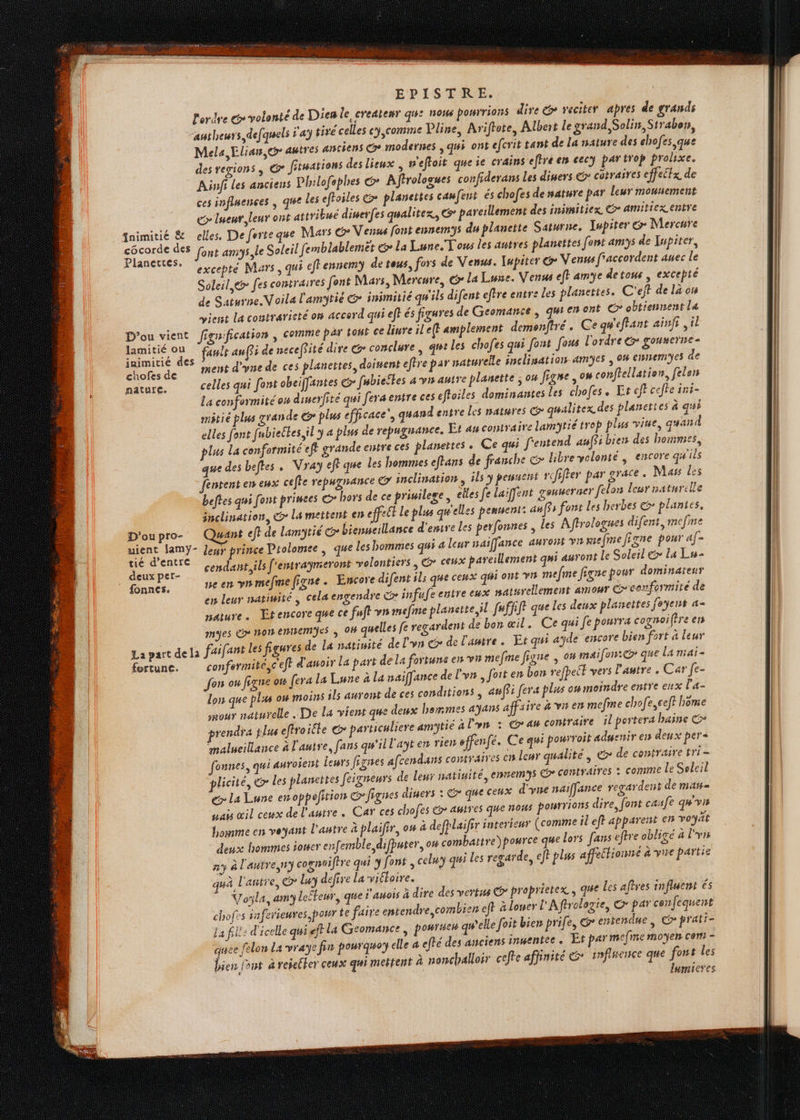 EPISTRE.
l'ordre & volonté de Dieu le createur que nous pourrions dire & reciter apres de grands
autheurs, desquels i'ay tiré celles cy, comme Pline, Aristote, Albert le grand, Solin, Strabon,
Mela, Elian, & autres anciens & modernes, qui ont escrit tant de la nature des choses, que
des regions, & situations des lieux, n'estoit que ie crains estre en cecy par trop prolixe.
Ainsi les anciens Philosophes & Astrologues considerans les diuers & cõtraires effectz de
ces influences, que les estoiles & planettes causent és choses de nature par leur mouuement
& lueur, leur ont attribué diuerses qualitez, & pareillement des inimitiez & amitiez entre
Inimitié & elles. De sorte que Mars & Venus sont ennemys du planette Saturne. Iupiter & Mercure
cõcorde des sont amys, le Soleil semblablemẽt & la Lune. Tous les autres planettes sont amys de Iupiter,
Planettes. excepté Mars, qui est ennemy de tous, fors de Venus. Iupiter & Venus s'accordent auec le
Soleil, & ses contraires sont Mars, Mercure, & la Lune. Venus est amye de tous, excepté
de Saturne. Voila l'amytié & inimitié qu'ils disent estre entre les planettes. C'est de là ou
vient la contrarieté ou accord qui est és figures de Geomance, qui en ont & obtiennent la
D'ou vient signification, comme par tout ce liure il est amplement demonstré. Ce qu'estant ainsi, il
lamitié ou fault aussi de necessité dire & conclure, que les choses qui sont sous l'ordre & gouuerne-
inimitié des ment d'vne de ces planettes, doiuent estre par naturelle inclination amyes, ou ennemyes de
choses de celles qui sont obeissantes & subiectes a vn autre planette, ou signe, ou constellation, selon
nature. la conformité ou diuersité qui sera entre ces estoiles dominantes les choses. Et est ceste ini-
mitié plus grande & plus efficace, quand entre les natures & qualitez des planettes à qui
elles sont subiectes, il y a plus de repugnance. Et au contraire lamytié trop plus viue, quand
plus la conformité est grande entre ces planettes. Ce qui s'entend aussi bien des hommes,
que des bestes. Vray est que les hommes estans de franche & libre volonté, encore qu'ils
sentent en eux ceste repugnance & inclination, ils y peuuent resister par grace. Mais les
bestes qui sont priuees & hors de ce priuilege, elles se laissent gouuerner selon leur naturelle
inclination, & la mettent en effect le plus qu'elles peuuent: aussi font les herbes & plantes,
D'ou pro- Quant est de lamytié & bienueillance d'entre les personnes, les Astrologues disent, mesme
uient lamy- leur prince Ptolomee, que les hommes qui a leur naissance auront vn mesme signe pour as-
tié d'entre cendant, ils s'entraymeront volontiers, & ceux pareillement qui auront le Soleil & la Lu-
deux per- ne en vn mesme signe. Encore disent ils que ceux qui ont vn mesme signe pour dominateur
sonnes. en leur natiuité, cela engendre & infuse entre eux naturellement amour & conformité de
nature. Et encore que ce fust vn mesme planette, il suffist que les deux planettes soyent a-
myes & non ennemyes, ou quelles se regardent de bon œil. Ce qui se pourra cognoistre en
La part de la faisant les figures de la natiuité de l'vn & de l'autre. Et qui ayde encore bien fort à leur
fortune. conformité, c'est d'auoir la part de la fortune en vn mesme signe, ou maison: & que la mai-
son ou signe ou sera la Lune à la naissance de l'vn, soit en bon respect vers l'autre. Car se-
lon que plus ou moins ils auront de ces conditions, aussi sera plus ou moindre entre eux l'a-
mour naturelle. De la vient que deux hommes ayans affaire à vn en mesme chose, cest hõme
prendra plus estroicte & particuliere amytié à l'vn: & au contraire il portera haine &
malueillance à l'autre, sans qu'il l'ayt en rien offensé. Ce qui pourroit aduenir en deux per-
sonnes, qui auroient leurs signes ascendans contraires en leur qualité, & de contraire tri-
plicité, & les planettes seigneurs de leur natiuité, ennemys & contraires: comme le Soleil
& la Lune en opposition & signes diuers: & que ceux d'vne naissance regardent de mau-
uais œil ceux de l'autre. Car ces choses & autres que nous pourrions dire, sont cause qu'vn
homme en voyant l'autre à plaisir, ou à desplaisir interieur (comme il est apparent en voyãt
deux hommes iouer ensemble, disputer, ou combattre) pource que lors sans estre obligé à l'vn
ny à l'autre, ny cognoistre qui y sont, celuy qui les regarde, est plus affectionné à vne partie
quà l'autre, & luy desire la victoire.
Voyla, amy lecteur, que i'auois à dire des vertus & proprietez, que les astres influent és
choses inferieures, pour te faire entendre, combien est à louer l'Astrologie, & par consequent
la fille d'icelle qui est la Geomance, pourueu qu'elle soit bien prise, & entendue, & prati-
quee selon la vraye fin pourquoy elle a esté des anciens inuentee. Et par mesme moyen com-
bien sont à reiecter ceux qui mettent à nonchalloir ceste affinité & influence que font les
lumieres